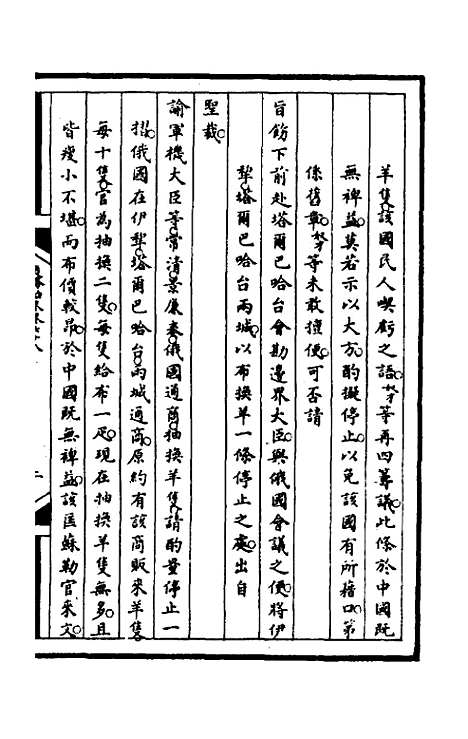 羊隻。該國民人喫虧之語。奴才等再四籌議。此條於中國既
無裨益。莫若示以大方。酌擬停止。以免該國有所藉口。第
係舊章。奴才等未敢擅便。可否請
旨飭下前赴塔爾巴哈台會勘邊界大臣。與俄國會議之便。將伊
犂塔爾巴哈台兩城。以布換羊一條停止之處。出自
聖裁。
諭軍機大臣等。常清景廉奏。俄國通商。抽換羊隻。請酌量停止一
摺。俄國在伊犂塔爾巴哈台。兩城通商。原約有該商販來羊隻。
每十隻。官為抽換二隻。每隻給布一疋。現在抽換羊隻無多。且
皆瘦小不堪。而布價較昂。於中國既無裨益。該匡蘇勒官來文